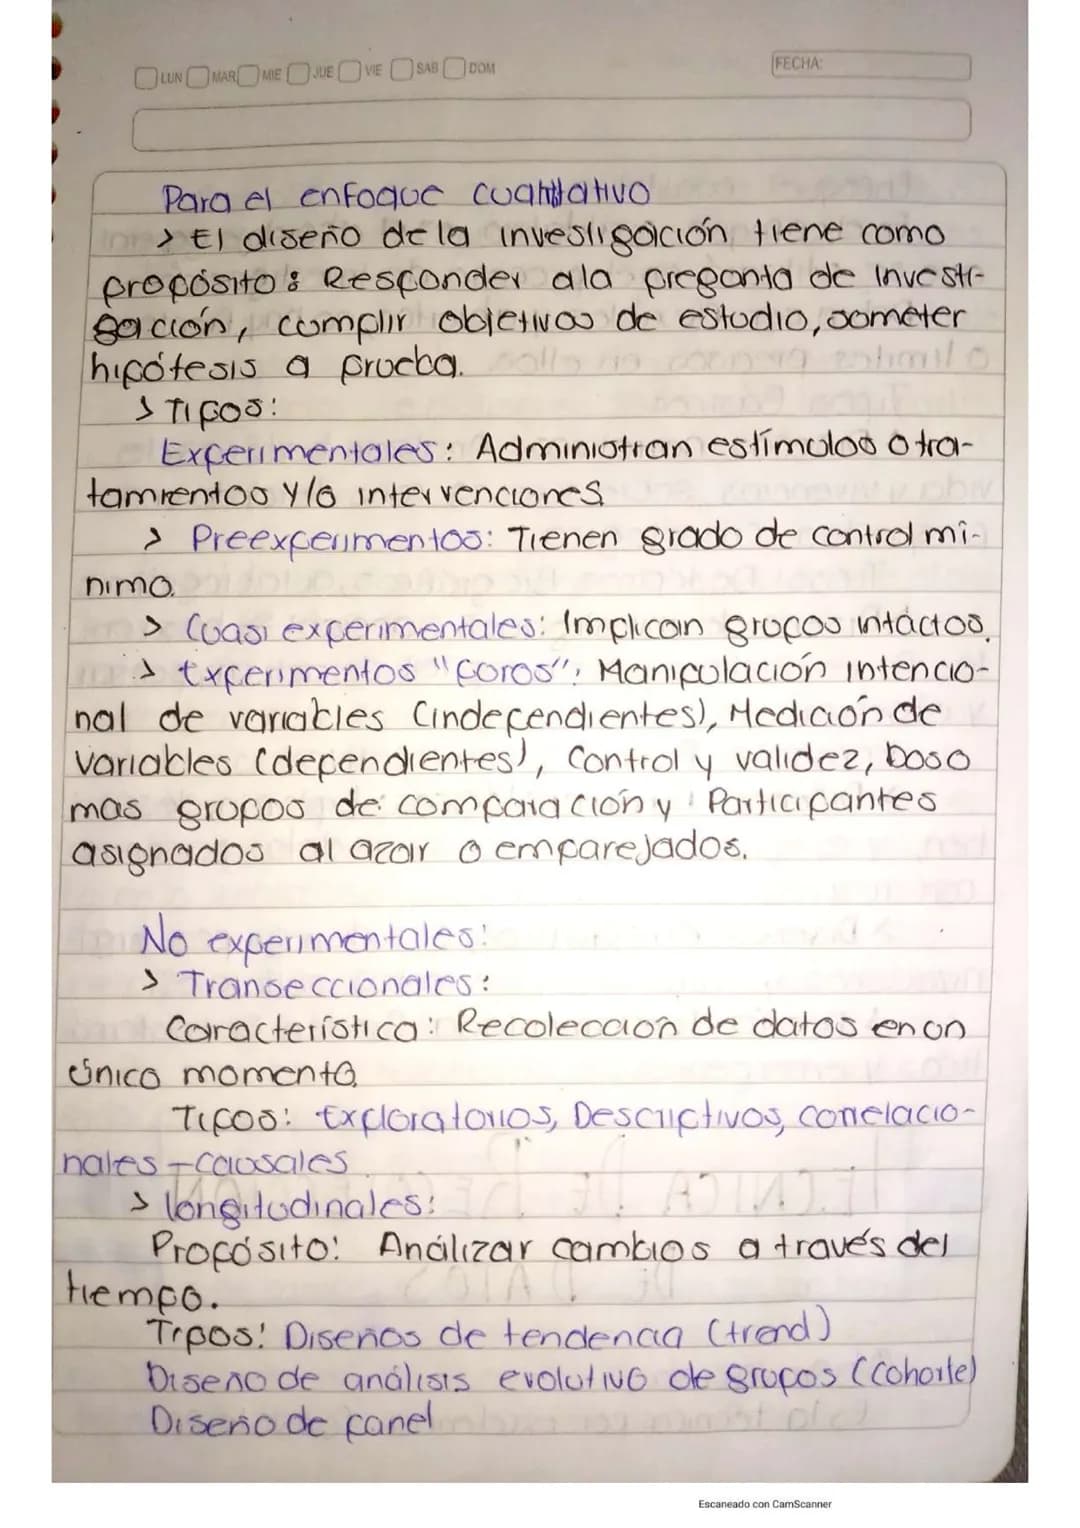 LUN MAR MIE JUE VIE SAB DOM
FECHA:
Para el enfoque cuantitativo
> El diseño de la investigación tiene como
propósito: Responder a la pregunta de investi-
gación, cumplir objetivos de estudio, someter
hipótesis a prueba.
> Tipos:
Experimentales: Administran estímulos o tra-
tamientos y/o intervenciones
> Preexperimentos: Tienen grado de control mí-
nimo.
> Cuasi experimentales: Implican grupos intactos.
> Experimentos "puros": Manipulación intencio-
nal de variables (independientes), Medición de
variables (dependientes), Control y validez, Dos o
mas grupos de comparación y Participantes
asignados al azar o emparejados.
No experimentales:
> Transeccionales:
Característica: Recolección de datos en un
único momento
Tipos: Exploratorios, Descriptivos, correlacio-
nales - causales
> longitudinales:
Propósito: Análizar cambios a través del
tiempo.
Tipos: Diseños de tendencia (trend)
Diseño de análisis evolutivo de grupos (cohorte)
Diseño de panel
Escaneado con CamScanner